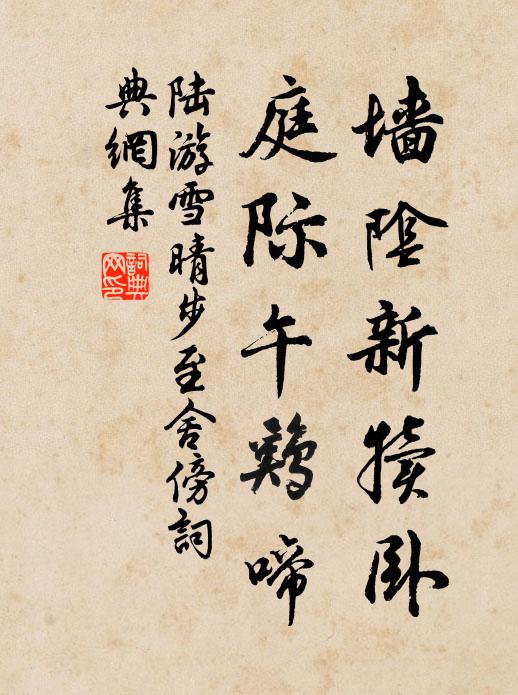 墙阴新犊卧
庭际午鸡啼
陆游雪晴步至舍傍詞
典網集
詞典网印